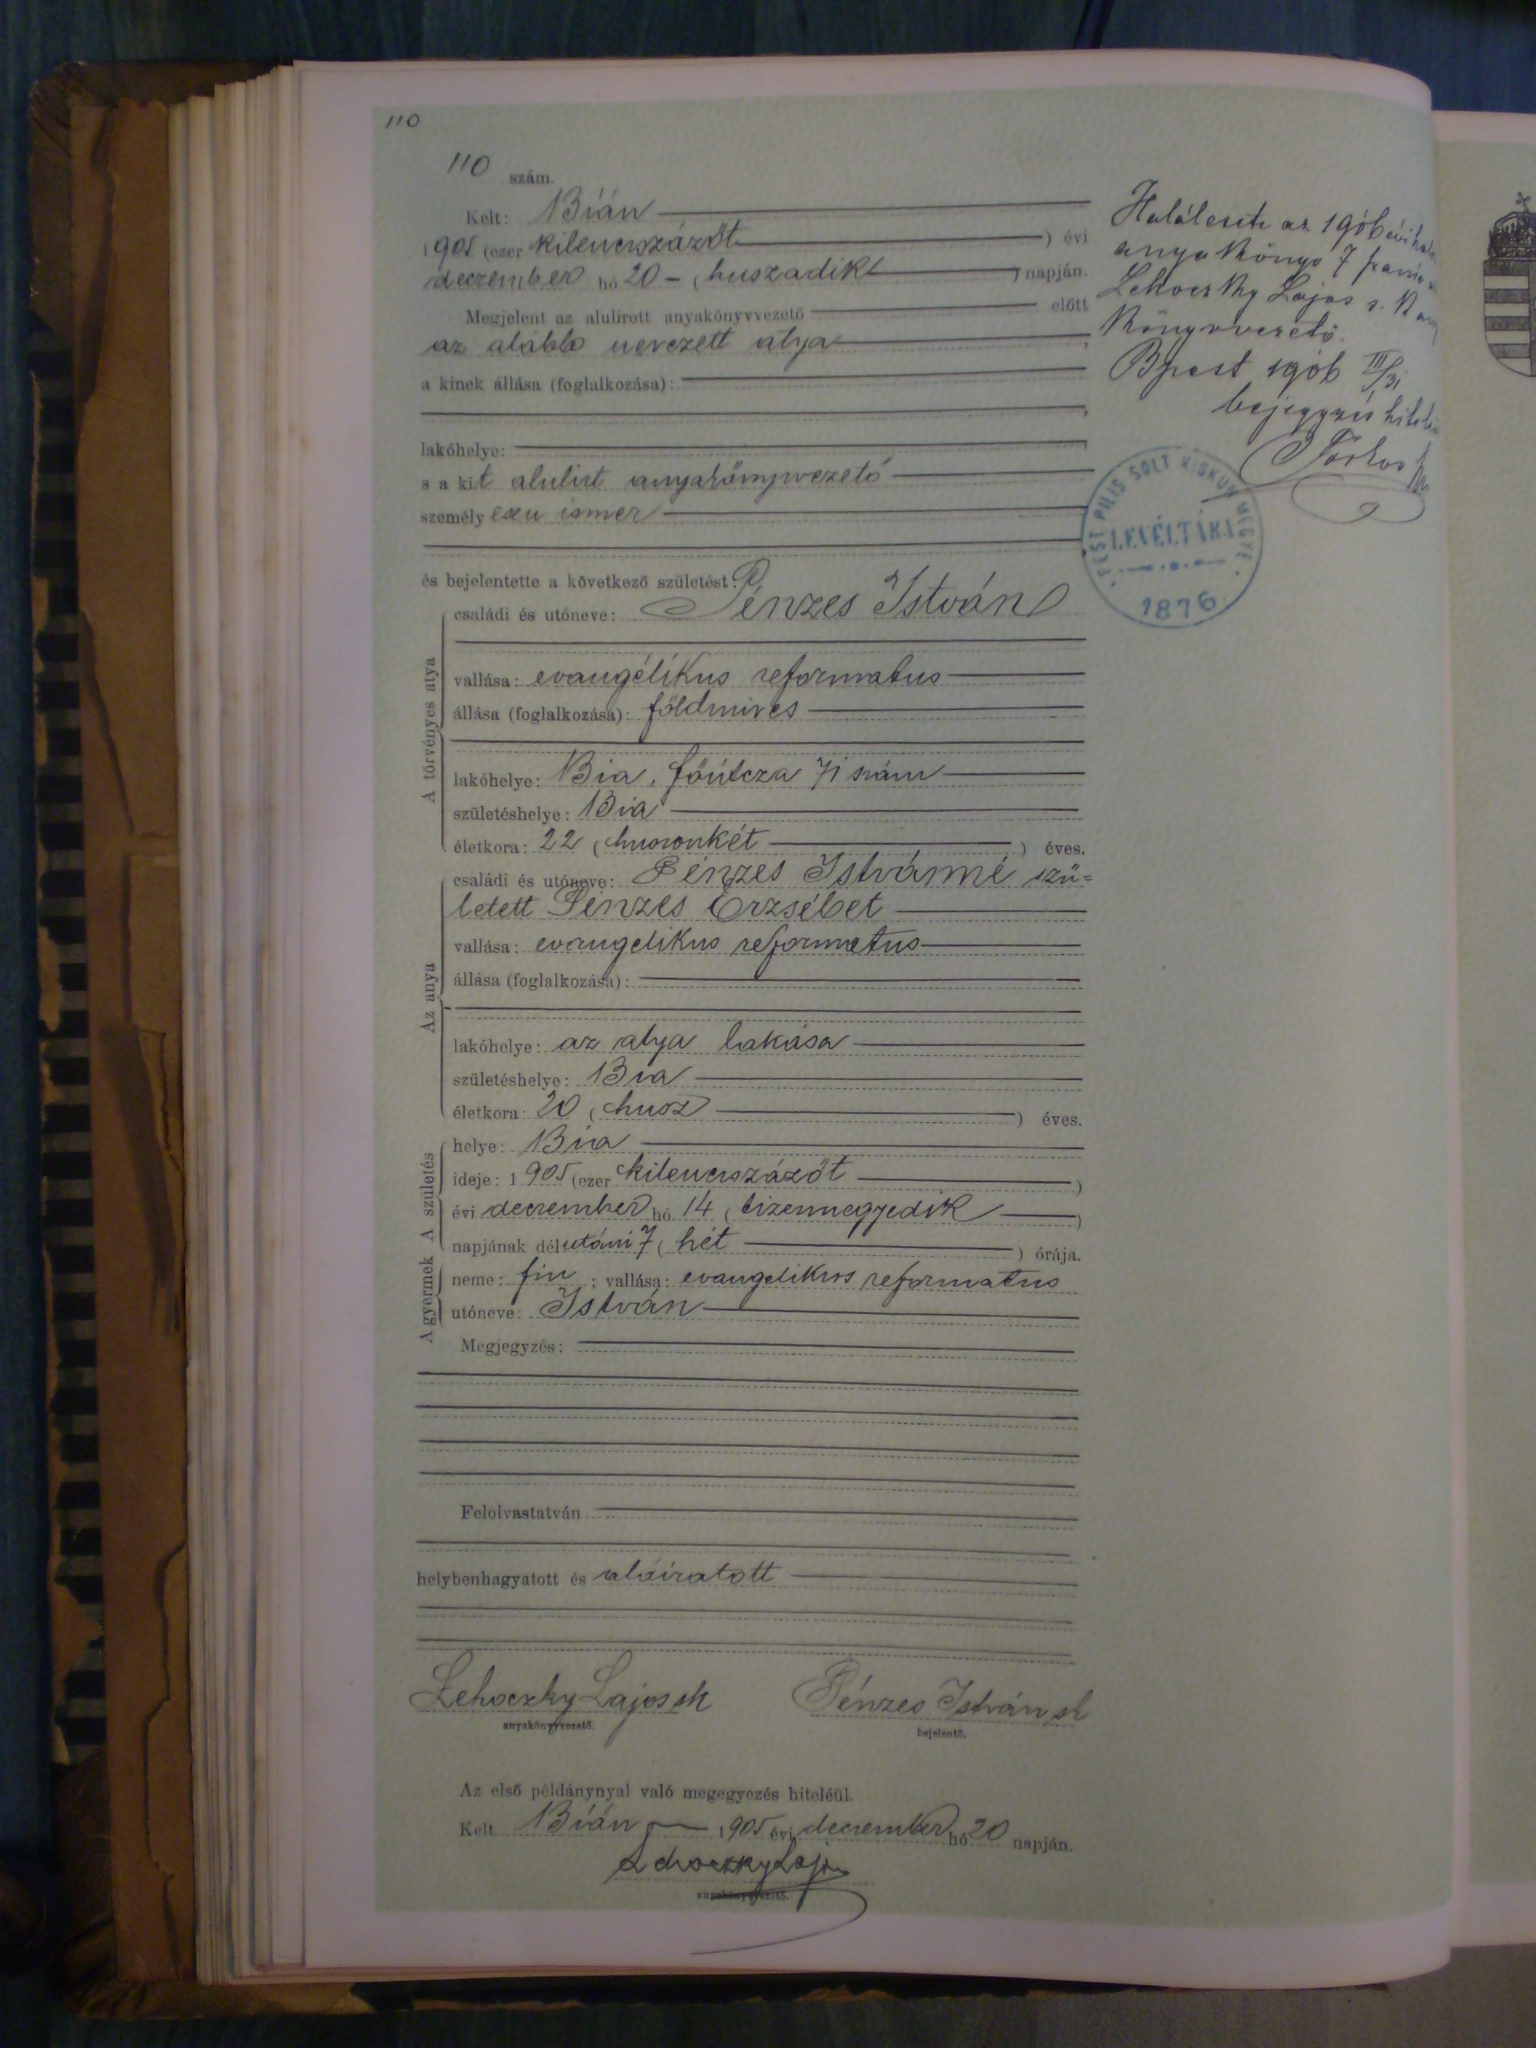 110
110 szám.
Kelt: Bián
1905 (ezer kilenczszázöt ) évi
deczember hó 20 - ( huszadik ) napján.
Megjelent az alulirott anyakönyvvezető előtt
az alább nevezett atya ,
a kinek állása (foglalkozása):
,
lakóhelye: ,
s a kit alulirt anyakönyvvezető
személyesen ismer
és bejelentette a következő születést:
A törvényes atya
családi és utóneve: Pénzes István
vallása: evangélikus reformatus
állása (foglalkozása): földmives
lakóhelye: Bia, főútcza 71 szám
születéshelye: Bia
életkora: 22 ( huszonkét ) éves.
Az anya
családi és utóneve: Pénzes Istvánné szü=
letett Pénzes Erzsébet
vallása: evangelikus reformatus
állása (foglalkozása):
lakóhelye: az atya lakása
születéshelye: Bia
életkora: 20 ( husz ) éves.
A születés
helye: Bia
ideje: 1905 (ezer kilenczszázöt )
évi deczember hó 14 ( tizennegyedik )
napjának délutáni 7 ( hét ) órája.
A gyermek
neme: fiu ; vallása: evangelikus reformatus
utóneve: István
Megjegyzés:
Felolvastatván
helybenhagyatott és aláiratott
Lehoczky Lajos sk
anyakönyvvezető.
Pénzes István sk
bejelentő.
Az első példánynyal való megegyezés hiteléül.
Kelt Bián 1905 évi deczember hó 20 napján.
Lehoczky Lajos
anyakönyvvezető.
Halálesete az 1906 évi
anyakönyv 7
Lehoczky Lajos s. k.
könyvvezető.
Bpest 1906 III/31
bejegyzés
PEST PILIS SOLT KISKUN MEGYE
LEVÉLTÁRA
1876